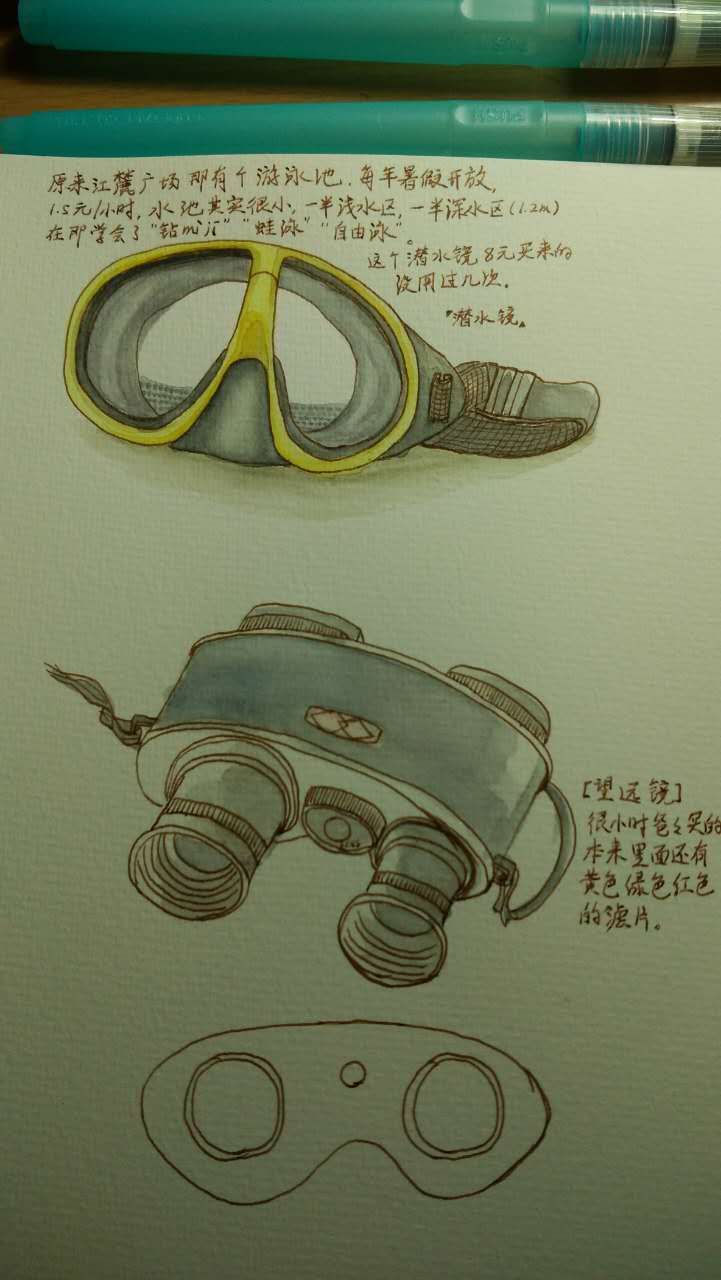 原来江麓广场那有个游泳池.每年暑假开放,
1.5元/小时,水池其实很小,一半浅水区,一半深水区(1.2m)
在那学会了“钻mì jī”“蛙泳”“自由泳”。
这个潜水镜8元买来的
没用过几次.
『潜水镜』
[望远镜]
很小时爸爸买的
本来里面还有
黄色绿色红色
的滤片。